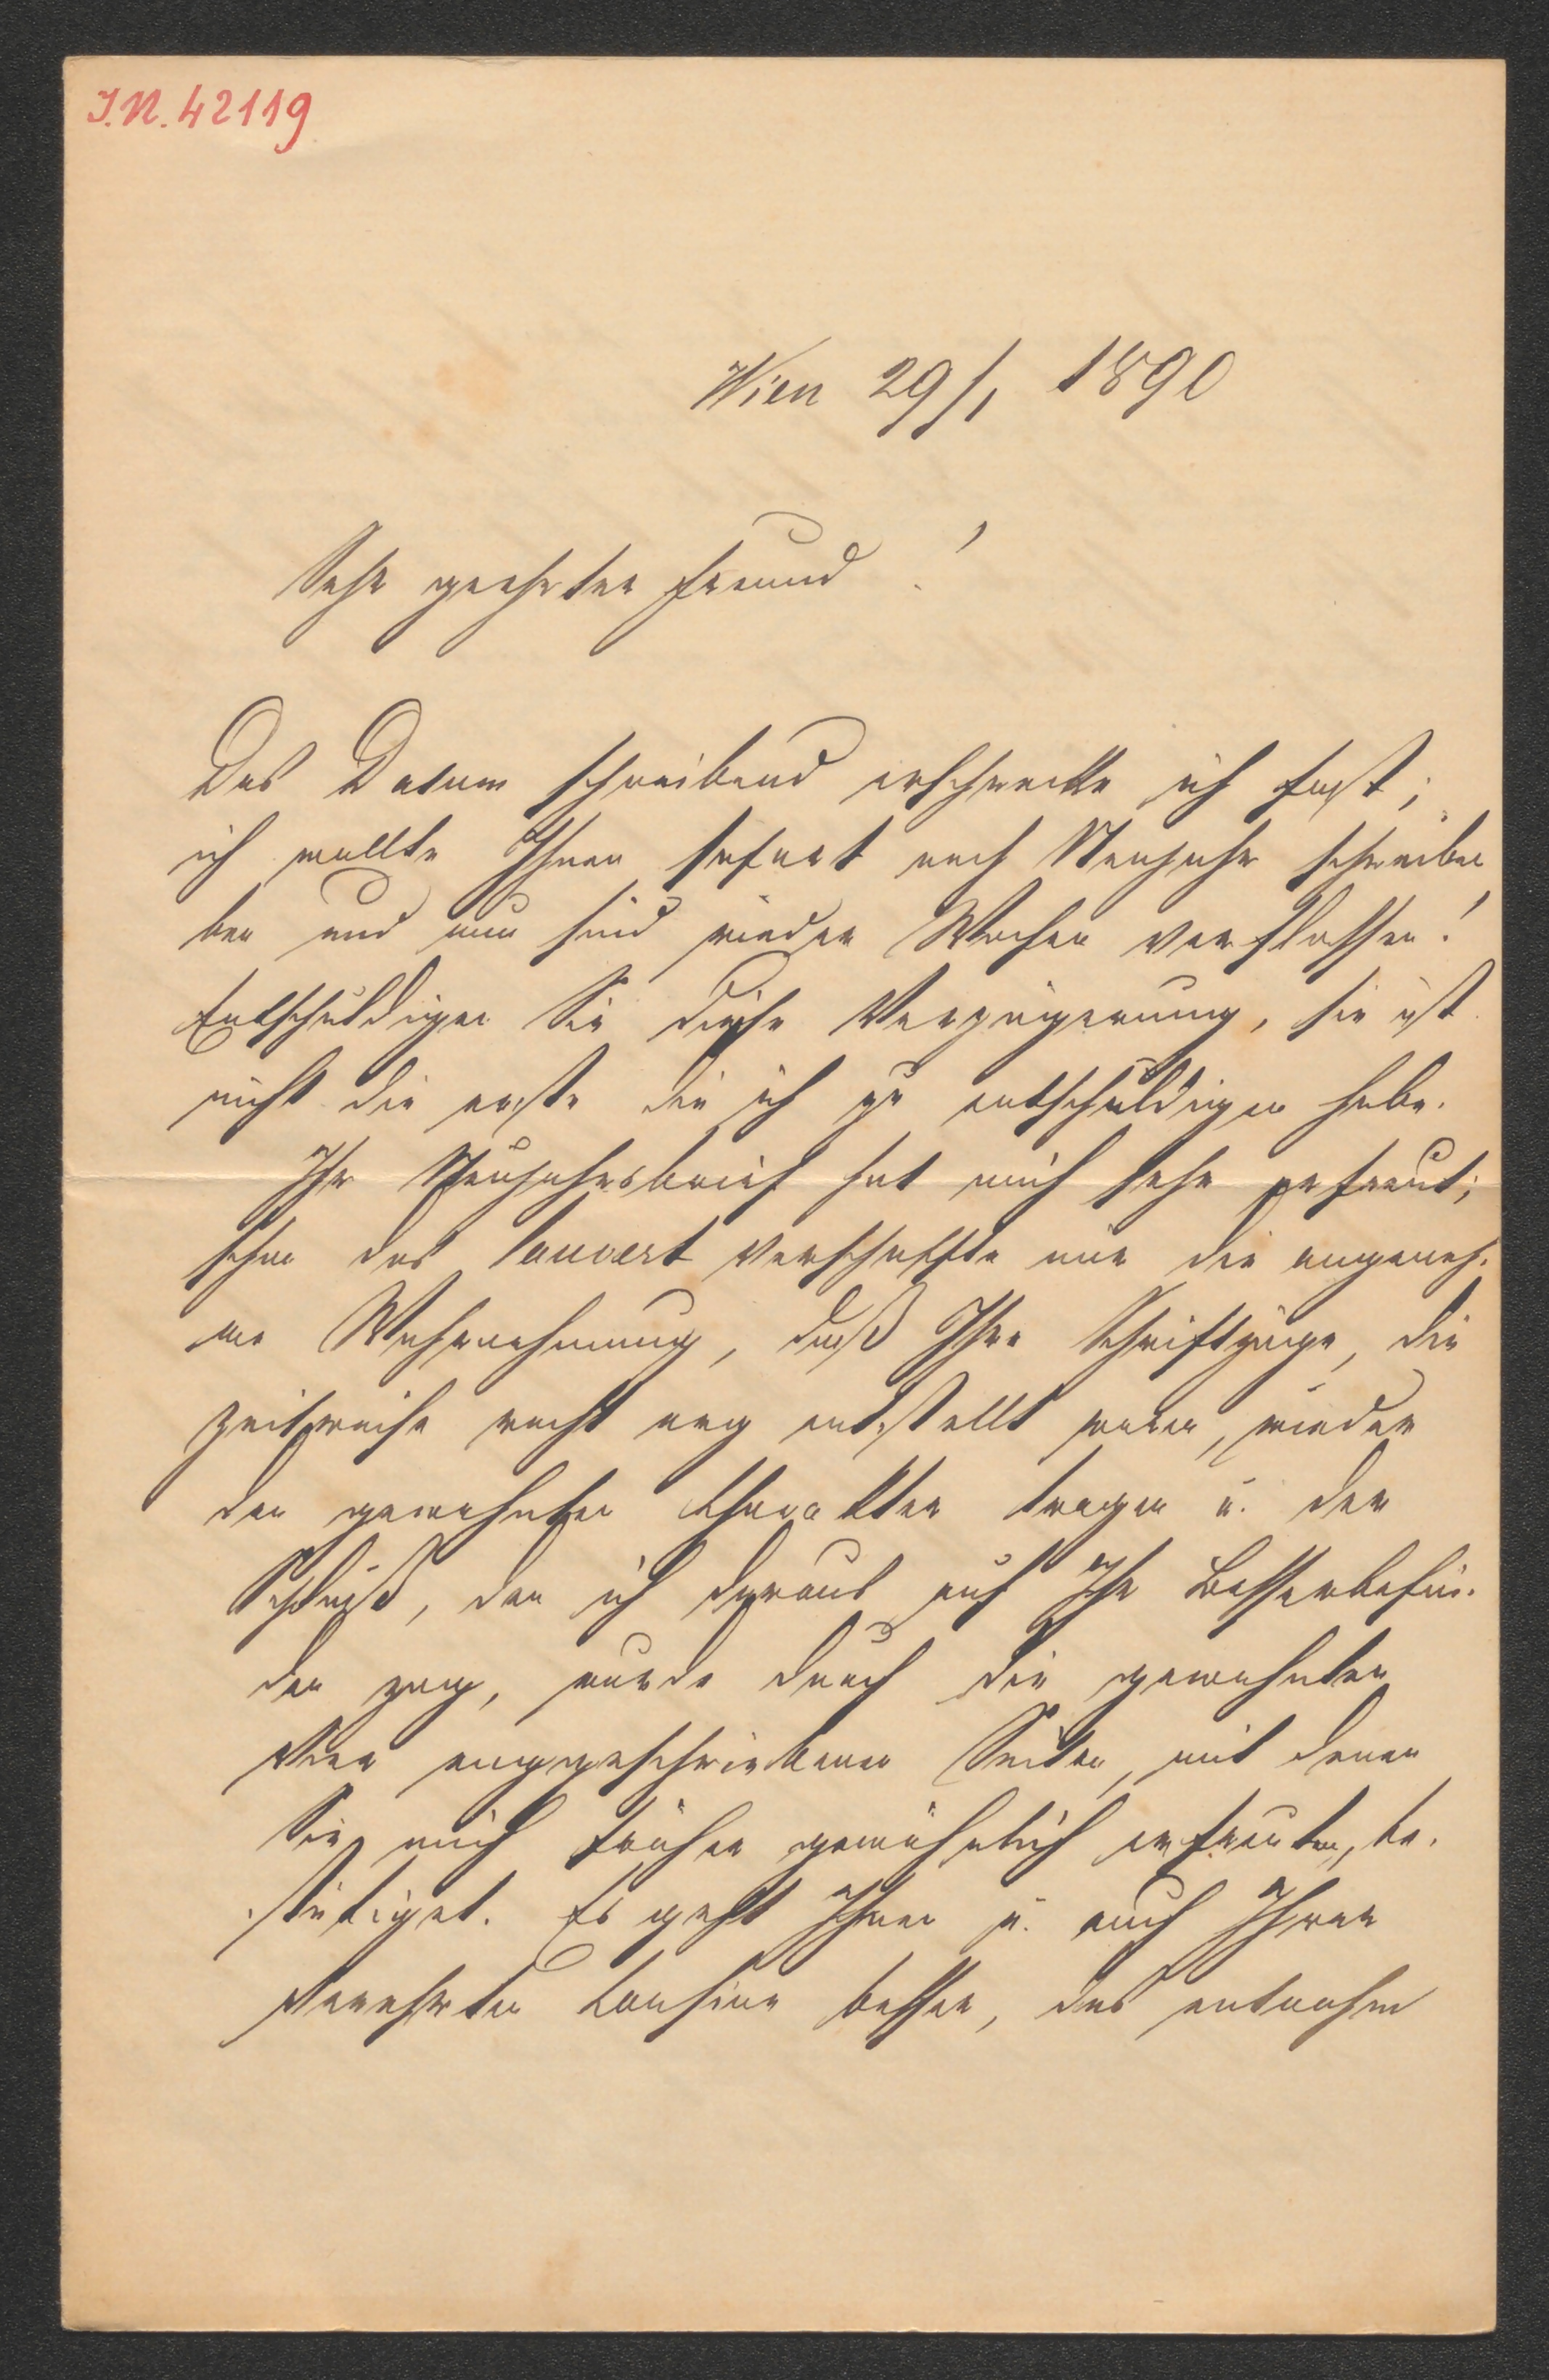 I.N. 42119
Wien 29/1 1890
Sehr geehrter Freund!
Das Datum schreibend erschrecke ich fast;
ich wollte Ihnen sofort nach Neujahr schreiben
ben und nun sind wieder Wochen verflossen!
Entschuldigen Sie diese Verzögerung, sie ist
nicht die erste die ich zu entschuldigen habe.
Ihr Neujahrsbrief hat mich sehr gefreut;
schon das Couvert verschaffte mir die angeneh-
me Wahrnehmung, daß Ihre Schriftzüge, die
zeitweise recht arg entstellt waren, wieder
den gewohnten Charakter tragen u. der
Schluß, den ich daraus auf Ihr Besserbefin-
den zog, wurde durch die gewohnten
vier enggeschriebenen Seiten, mit denen
Sie mich früher gewöhnlich erfreuten, be-
stätiget. Es geht Ihnen u. auch Ihrer
verehrten Cousine besser, das entnahm